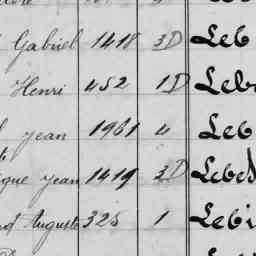 Gabriel 1418 3D Leb
Henri 452 1D Leb
Jean 1961 4 Leb
ique Jean 1419 3D Lebed
Auguste 325 1 Lebi